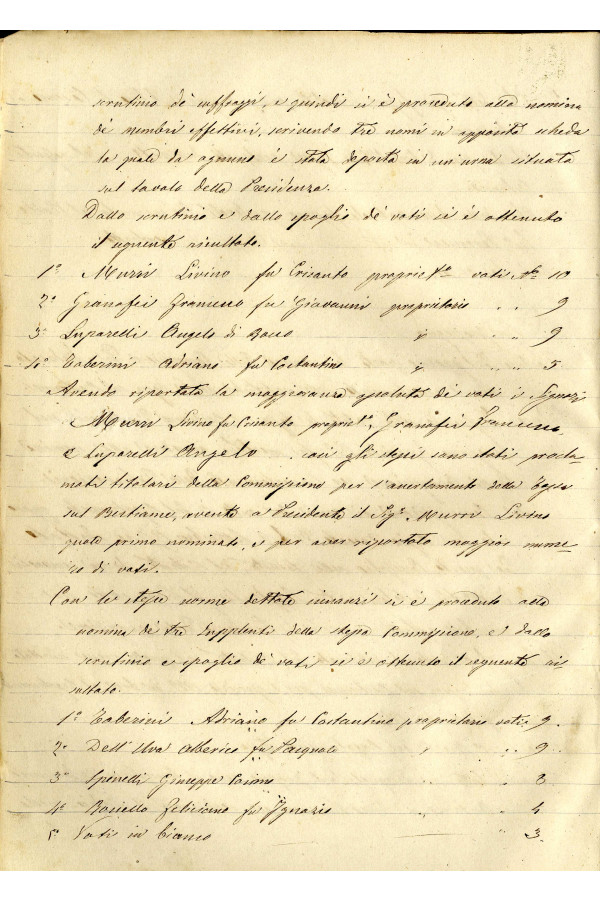 scrutinio de' suffragi, e quindi si è proceduto alla nomina
de' membri effettivi, scrivendo tre nomi in apposita scheda
la quale da ognuno è stata deposta in un'urna situata
sul tavolo della Presidenza.
Dallo scrutinio e dallo spoglio de' voti si è ottenuto
il seguente risultato.
1° Murri Livino fu Crisanto propriet.° voti N.° 10
2° Granafei Francesco fu Giovanni proprietario " " 9
3° Luparelli Angelo di Rocco " " 9
4° Taberini Adriano fu Costantino " " " 5
Avendo riportata la maggioranza assoluta de' voti i Signori
Murri Livino fu Crisanto propriet.°, Granafei Francesco
e Luparelli Angelo così gli stessi sono stati procla-
mati titolari della Commissione per l'accertamento della Tassa
sul Bestiame, avente a Presidente il Sig. Murri Livino
quale primo nominato, e per aver riportato maggior nume-
ro di voti.
Con le stesse norme dettate innanzi si è proceduto alla
nomina de' tre Supplenti della stessa Commissione, e dallo
scrutinio e spoglio de' voti si è ottenuto il seguente ri-
sultato.
1° Taberini Adriano fu Costantino proprietario voti 9.
2° Dell'Uva Alberico fu Pasquale " " 9
3° Spinelli Giuseppe " " 8
4° Feliciano fu Ignazio " " 4
5° Voti in bianco 3.